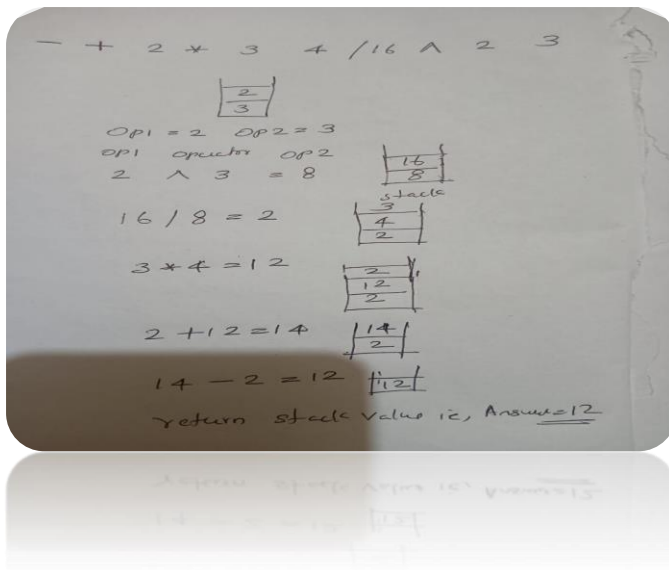 - + 2 * 3 4 / 16 ^ 2 3
2
3
OP1 = 2 OP2 = 3
OP1 operator OP2
2 ^ 3 = 8
16
8
stack
16 / 8 = 2
3
4
2
3 * 4 = 12
2
12
2
2 + 12 = 14
14
2
14 - 2 = 12
12
return stack value ie, Answer=12